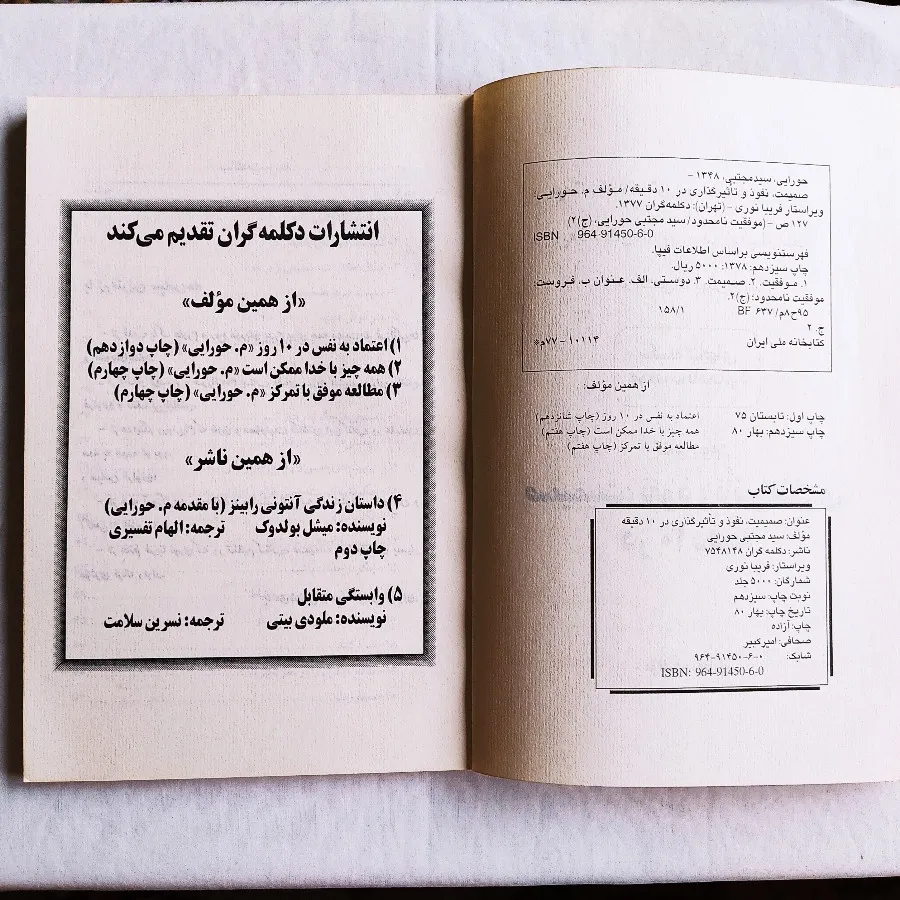 حورایی، سیدمجتبی، ۱۳۴۸ -
صمیمت، نفوذ و تأثیرگذاری در ۱۰ دقیقه/ مؤلف م. حورایی
ویراستار فریبا نوری - (تهران): دکلمه‌گران ۱۳۷۷.
۱۲۷ ص - (موفقیت نامحدود/ سید مجتبی حورایی، (ج)۲)
ISBN 964-91450-6-0
فهرستنویسی براساس اطلاعات فیپا.
چاپ سیزدهم: ۱۳۷۸: ۵۰۰۰ ریال.
۱. موفقیت. ۲. صمیمت. ۳. دوستی. الف. عنوان ب. فروست:
موفقیت نامحدود: (ج)۲.
۹۵ح۸م/ ۶۳۷ BF ۱۵۸/۱
ج. ۲
کتابخانه ملی ایران ۱۰۱۱۴ - ۷۷م*
از همین مؤلف:
چاپ اول: تابستان ۷۵ اعتماد به نفس در ۱۰ روز (چاپ شانزدهم)
چاپ سیزدهم: بهار ۸۰ همه چیز با خدا ممکن است (چاپ هفتم)
مطالعه موفق با تمرکز (چاپ هفتم)
مشخصات کتاب
عنوان: صمیمیت، نفوذ و تأثیرگذاری در ۱۰ دقیقه
مؤلف: سید مجتبی حورایی
ناشر: دکلمه گران ۷۵۴۸۱۴۸
ویراستار: فریبا نوری
شمارگان: ۵۰۰۰ جلد
نوبت چاپ: سیزدهم
تاریخ چاپ: بهار ۸۰
چاپ: آزاده
صحافی: امیرکبیر
شابک: ۰-۶-۹۱۴۵۰-۹۶۴
ISBN: 964-91450-6-0
انتشارات دکلمه گران تقدیم می‌کند
«از همین مؤلف»
۱) اعتماد به نفس در ۱۰ روز «م. حورایی» (چاپ دوازدهم)
۲) همه چیز با خدا ممکن است «م. حورایی» (چاپ چهارم)
۳) مطالعه موفق با تمرکز «م. حورایی» (چاپ چهارم)
«از همین ناشر»
۴) داستان زندگی آنتونی رابینز (با مقدمه م. حورایی)
نویسنده: میشل بولدوک ترجمه: الهام تفسیری
چاپ دوم
۵) وابستگی متقابل
نویسنده: ملودی بیتی ترجمه: نسرین سلامت